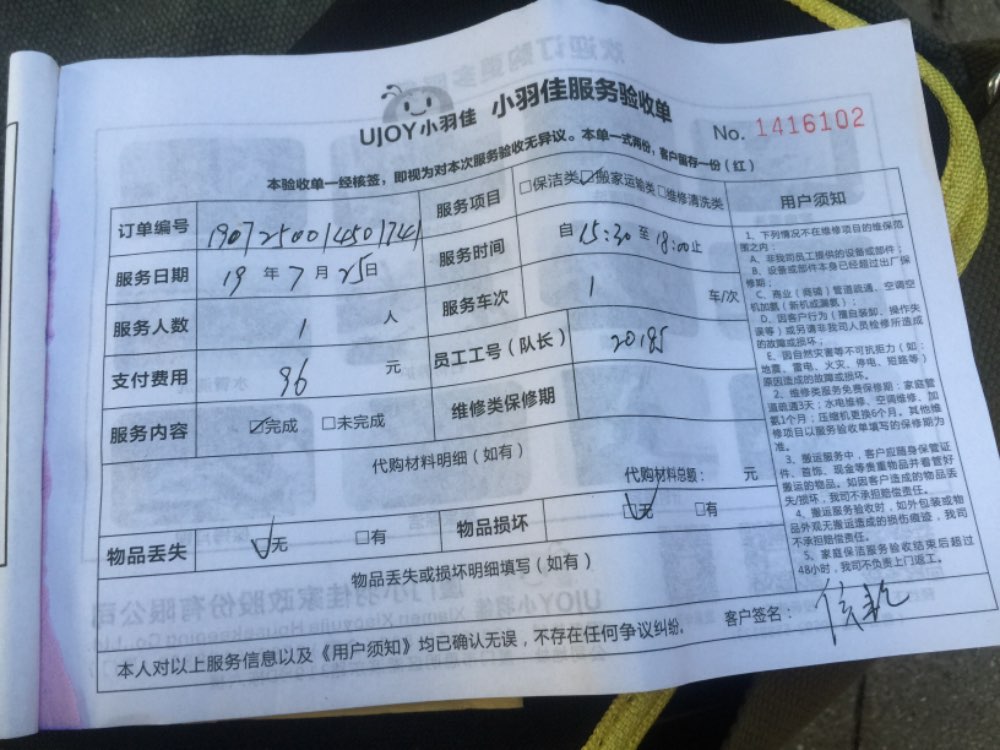 UJOY小羽佳 小羽佳服务验收单
No. 1416102
本验收单一经核签，即视为对本次服务验收无异议。本单一式两份，客户留存一份（红）
订单编号 1907250014501741 服务项目 □保洁类☑搬家运输类□维修清洗类
服务日期 19 年 7 月 25 日 服务时间 自 15:30 至 18:00 止
服务人数 1 人 服务车次 1 车/次
支付费用 96 元 员工工号（队长） 20195
服务内容 ☑完成 □未完成 维修类保修期
代购材料明细（如有）
代购材料总额： 元
物品丢失 ☑无 □有 物品损坏 ☑无 □有
物品丢失或损坏明细填写（如有）
本人对以上服务信息以及《用户须知》均已确认无误，不存在任何争议纠纷。 客户签名：
用户须知
1、下列情况不在维修项目的维保范
围之内：
A、非我司员工提供的设备或部件；
B、设备或部件本身已经超过出厂保
修期；
C、商业（商铺）管道疏通、空调空
机加氨（新机或漏氨）；
D、因客户行为（擅自装卸、操作失
误等）或另请非我司人员检修所造成
的故障或损坏；
E、因自然灾害等不可抗拒力（如：
地震、雷电、火灾、停电、短路等）
原因造成的故障或损坏。
2、维修类服务免费保修期：家庭管
道疏通3天；水电维修、空调维修、加
氨1个月；压缩机更换6个月。其他维
修项目以服务验收单填写的保修期为
准。
3、搬运服务中，客户应随身保管证
件、首饰、现金等贵重物品并看管好
搬运的物品。如因客户造成的物品丢
失/损坏，我司不承担赔偿责任。
4、搬运服务验收时，如外包装或物
品外观无搬运造成的损伤痕迹，我司
不承担赔偿责任。
5、家庭保洁服务验收结束后超过
48小时，我司不负责上门返工。